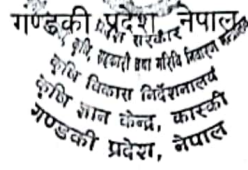 गण्डकी प्रदेश नेपाल
प्रदेश सरकार
कृषि, सहकारी तथा गरिवि निवारण
कृषि विकास निर्देशनालय
कृषि ज्ञान केन्द्र, कास्की
गण्डकी प्रदेश, नेपाल